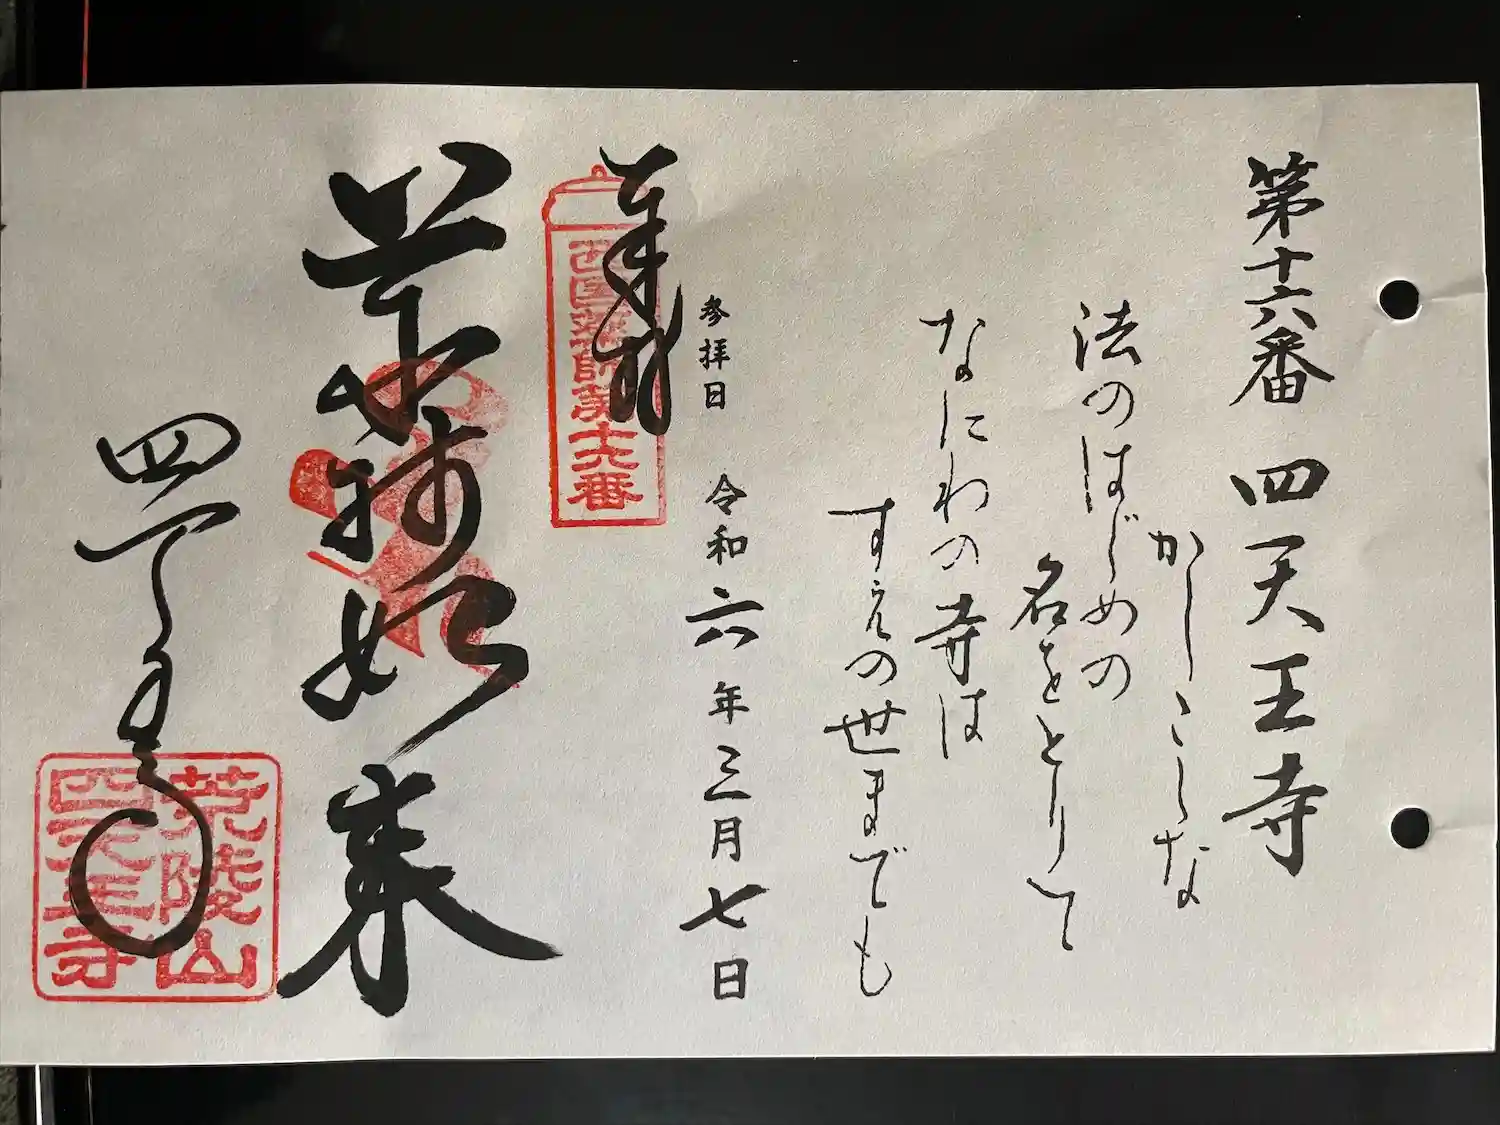 第十六番 四天王寺
かしこしな
法のはじめの
名をとりて
なにわの寺は
すえの世までも
参拝日 令和六年三月七日
奉拝
西国薬師第十六番
薬師如来
四天王寺
荒陵山
四天王寺